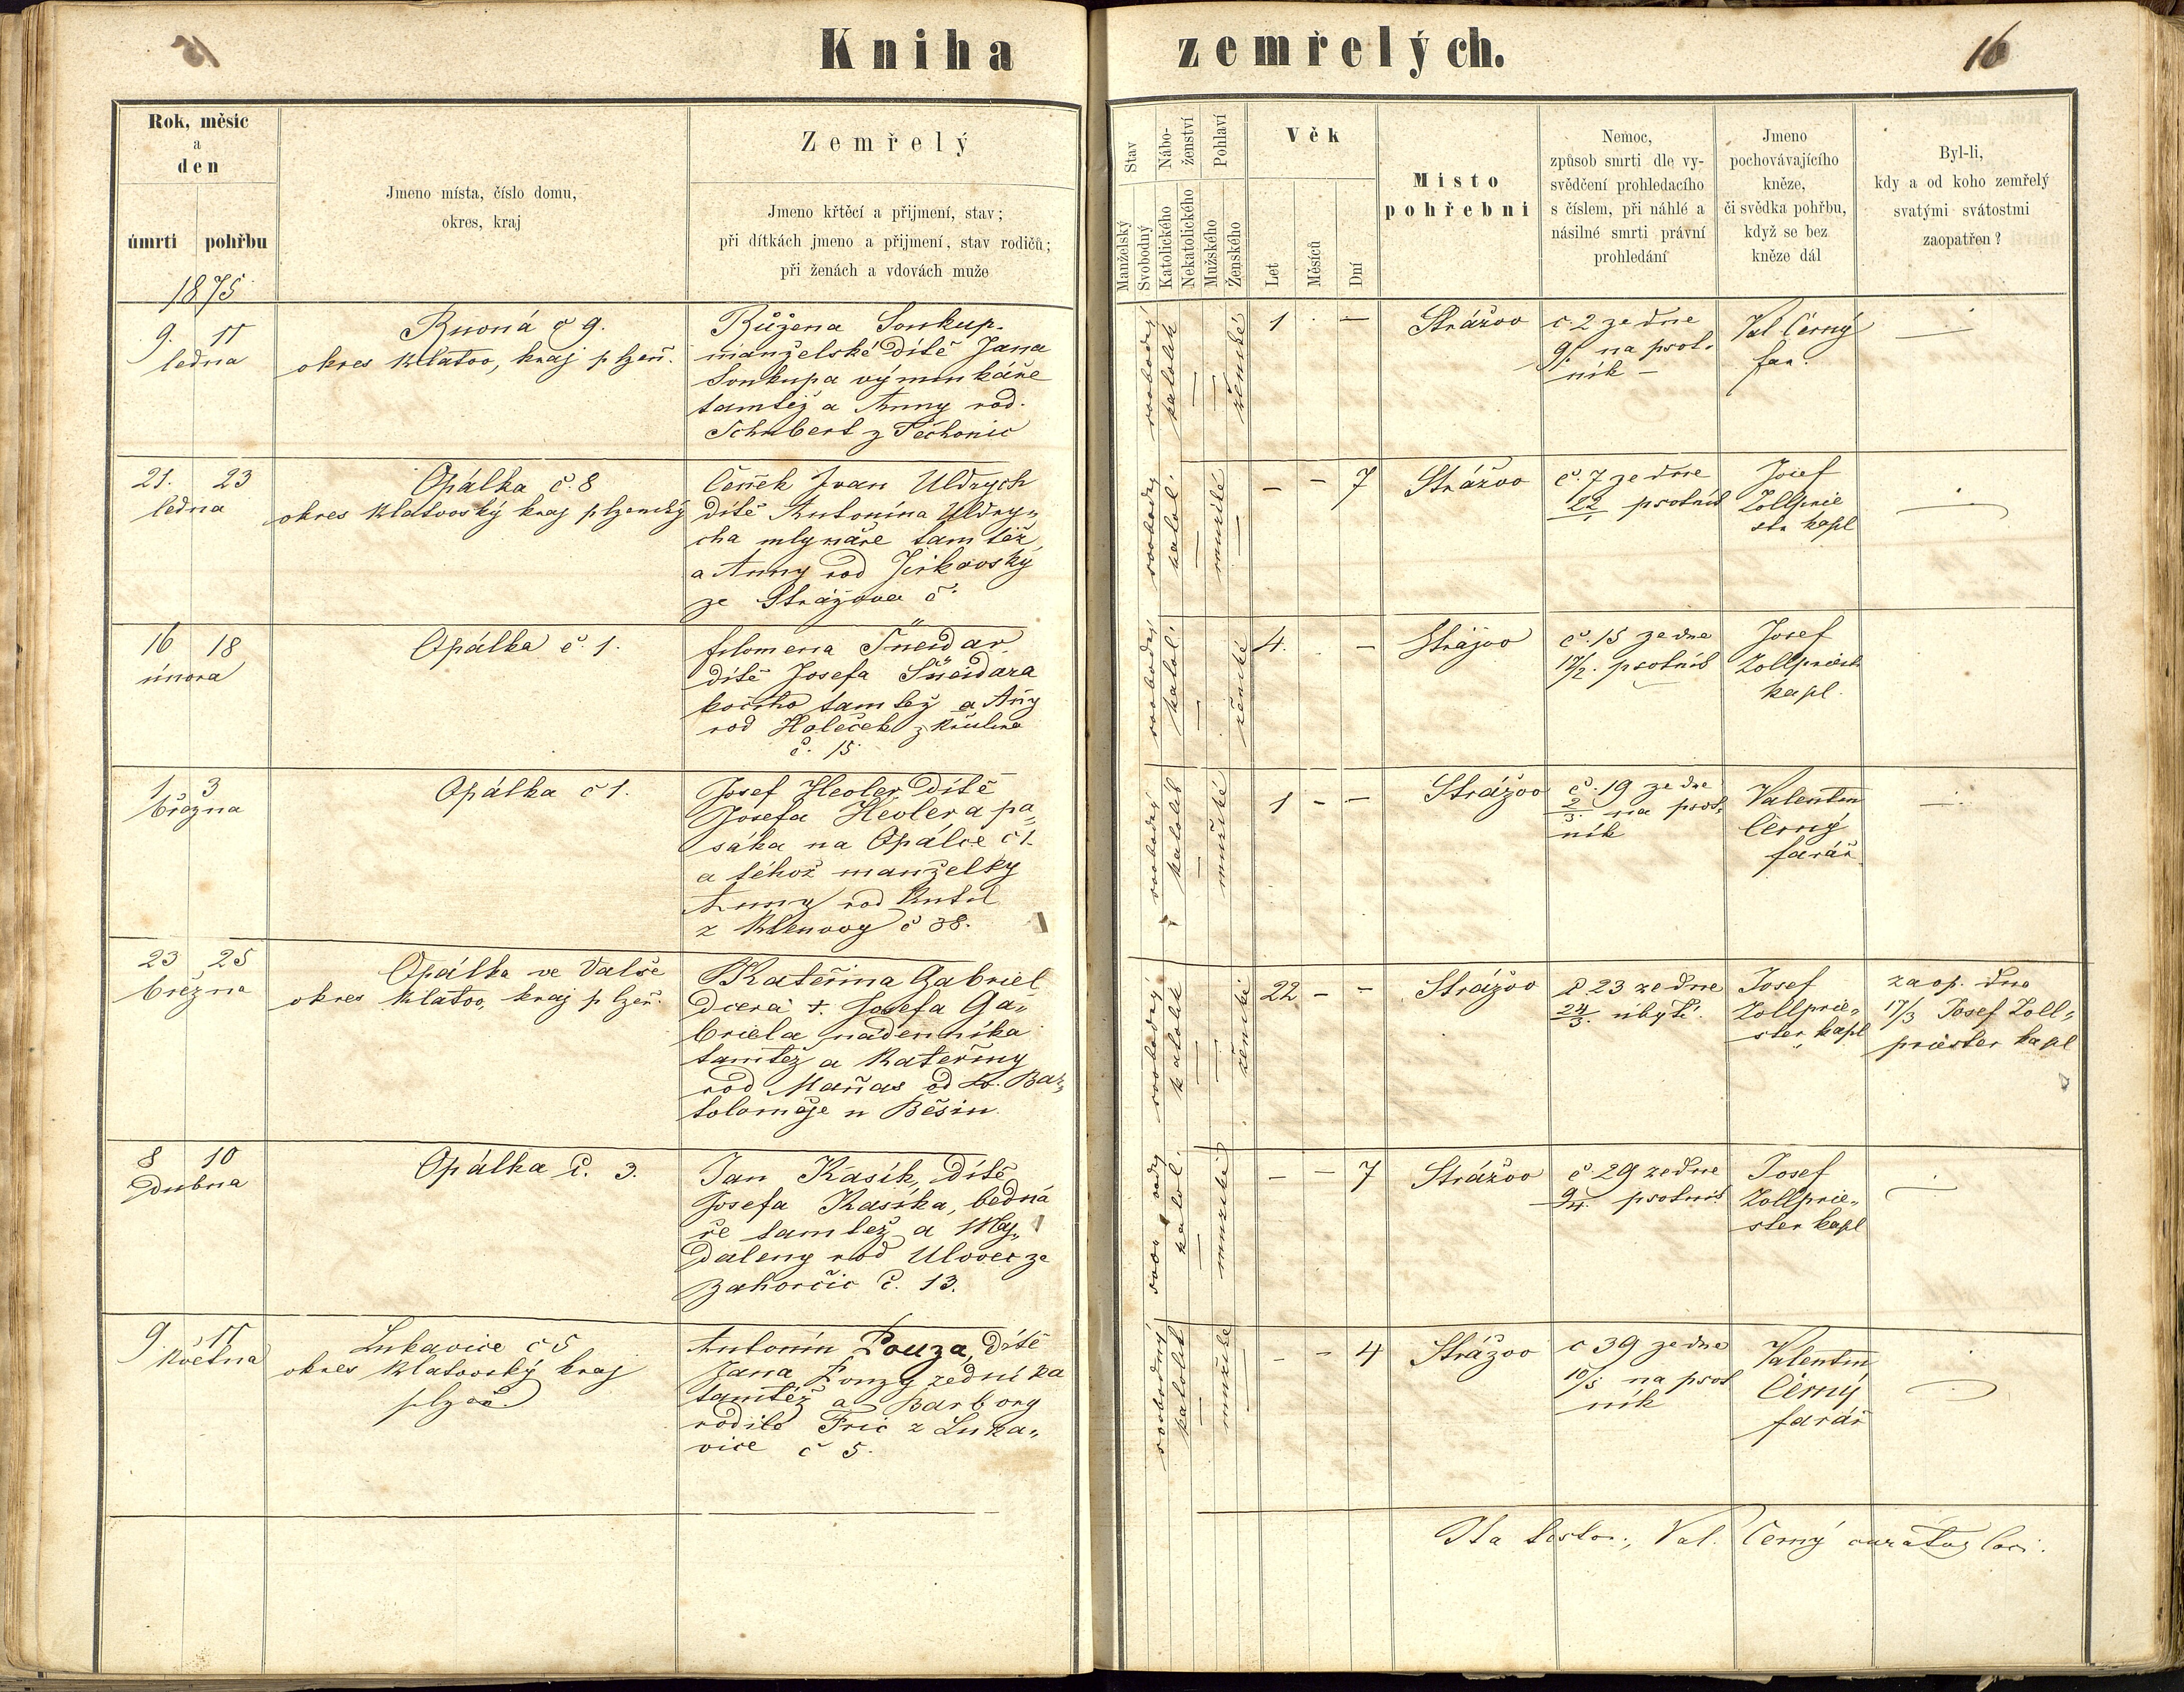 Kniha zemřelých.
16
Rok, měsíc
a
den
úmrtí pohřbu
Jmeno místa, číslo domu,
okres, kraj
Zemřelý
Jmeno křtěcí a přijmení, stav;
při dítkách jmeno a přijmení, stav rodičů;
při ženách a vdovách muže
Stav
Manželský
Svobodný
Nábo-
ženství
Katolického
Nekatolického
Pohlaví
Mužského
Ženského
Věk
Let
Měsíců
Dní
Místo
pohřební
Nemoc,
způsob smrti dle vy-
svědčení prohledacího
s číslem, při náhlé a
násilné smrti právní
prohledání
Jmeno
pochovávajícího
kněze,
či svědka pohřbu,
když se bez
kněze dál
Byl-li,
kdy a od koho zemřelý
svatými svátostmi
zaopatřen?
1875
9. 11
ledna
č 9.
okres Klatov, kraj plzeň.
Růžena Soukup.
manželské dítě Jana
Soukupa výminkáře
tamtéž a Anny rod.
Schubert z Těchonic
svobodný
katolík
ženské
1 . –
Strážov
č. 2 ze dne
9/1. na psot-
ník –
Val Černý
far.
21. 23
ledna
Opálka č. 8
okres Klatovský kraj plzenský
Čeněk Ivan Uldrych
dítě Antonína Uldry„
cha mlynáře tamtéž
a Anny rod Jirkovský
ze Strážova č.
svobodný
katol.
mužské
– – 7
Strážov
č. 7 ze dne
22/1 psotník
Josef
Zollprie
str kapl
16 18
února
Opálka č. 1.
filomena Šneidar
dítě Josefa Šneidara
kočího tamtéž a Aňy
rod Holeček z
č. 15.
svobodný
katol.
ženské
4. . –
Strážov
č. 15 ze dne
17/2. psotník
Josef
Zollpriest
kapl.
1. 3
března
Opálka č 1.
Josef Heoler dítě
Josefa Heolera pa„
sáka na Opálce č 1.
a téhož manželky
Anny rod
z Klenovy č 38.
svobodný
katolík
mužské
1 – –
Strážov
č. 19 ze dne
2/3. na psot„
ník
Valentin
Černý
farář
23 25
března
Opálka ve Dalře
okres Klatov, kraj plzeň.
Kateřina Gabriel
dcera †. Josefa Ga„
briela nádenníka
tamtéž a Kateřiny
rod Maňas od sv. Bar„
toloměje u Běšin
svobodný
katolík
ženské
22 – –
Strážov
č. 23 ze dne
24/3. úbytě.
Josef
Zollprie„
ster kapl
zaop. dne
17/3 Josef Zoll„
priester kapl
8 10
dubna
Opálka č. 3.
Jan Kasík, dítě
Josefa Kasíka, bedná
ře tamtéž a Maj„
daleny rod Ulovec ze
Zahorčic č. 13.
svobodný
katol.
mužské
– – 7
Strážov
č. 29 ze dne
9/4. psotník
Josef
Zollprie„
ster kapl
9. 11
května
Lukavice č 5
okres Klatovský kraj
plzeň.
Antonín Pouza, dítě
Jana Pouzy zedníka
tamtéž a Barbory
rodilé Fric z Luka„
vice č 5.
svobodný
katolík
mužské
– – 4
Strážov
č 39 ze dne
10/5 na psot
ník
Valentin
Černý
farář
Ita testor., Val. Černý curatus loci.